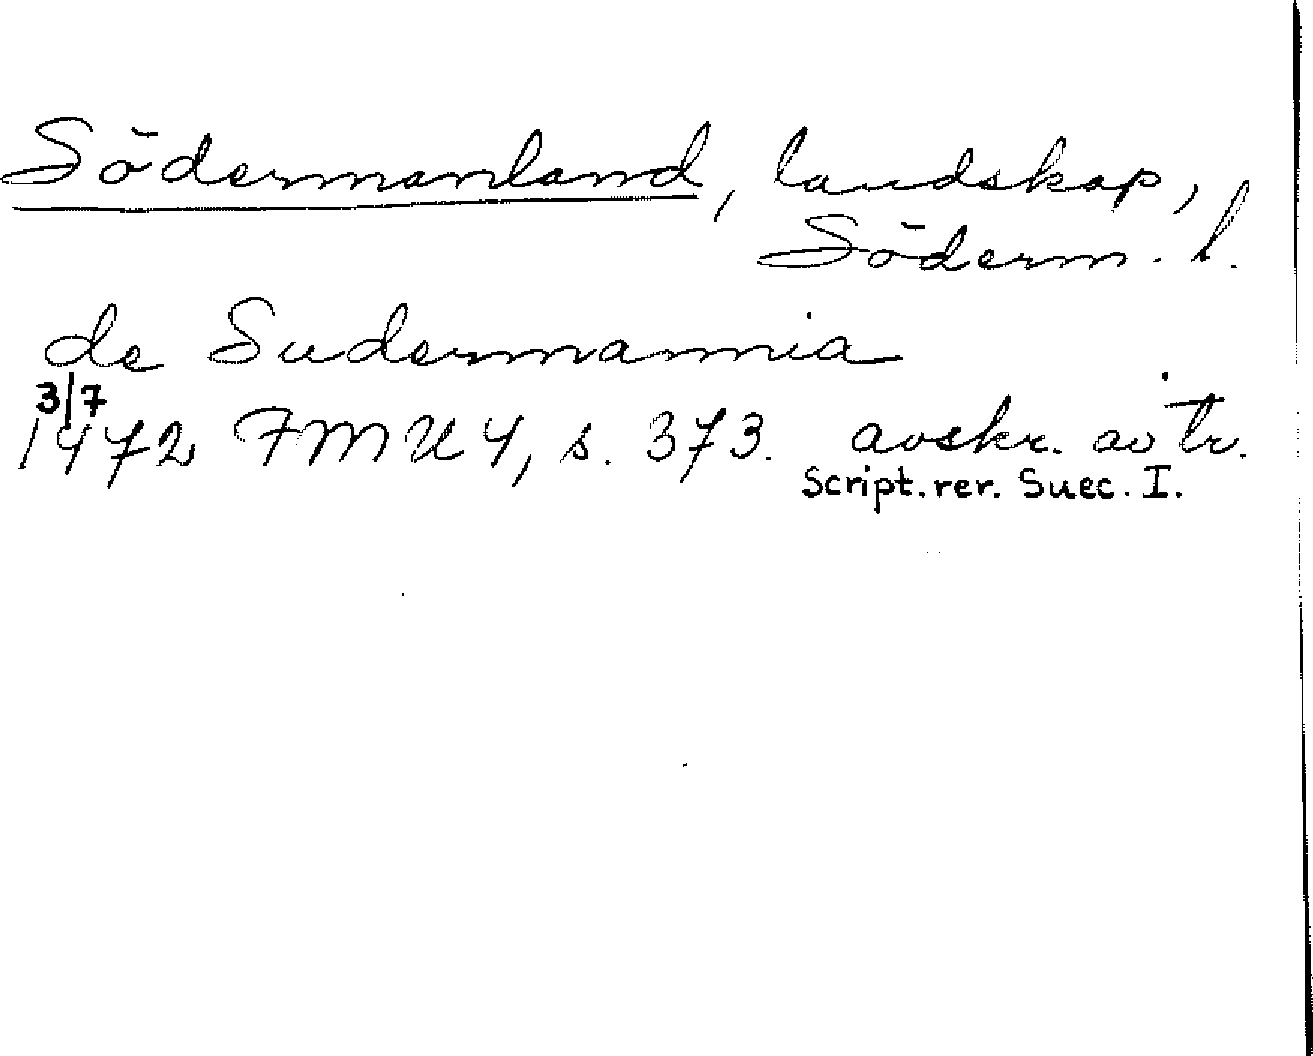 Södermanland, landskap,
Söderm. l.
de Sudermannia
3/7
1472 FMU 4, s. 373. avskr. av tr.
Script. rer. Suec. I.